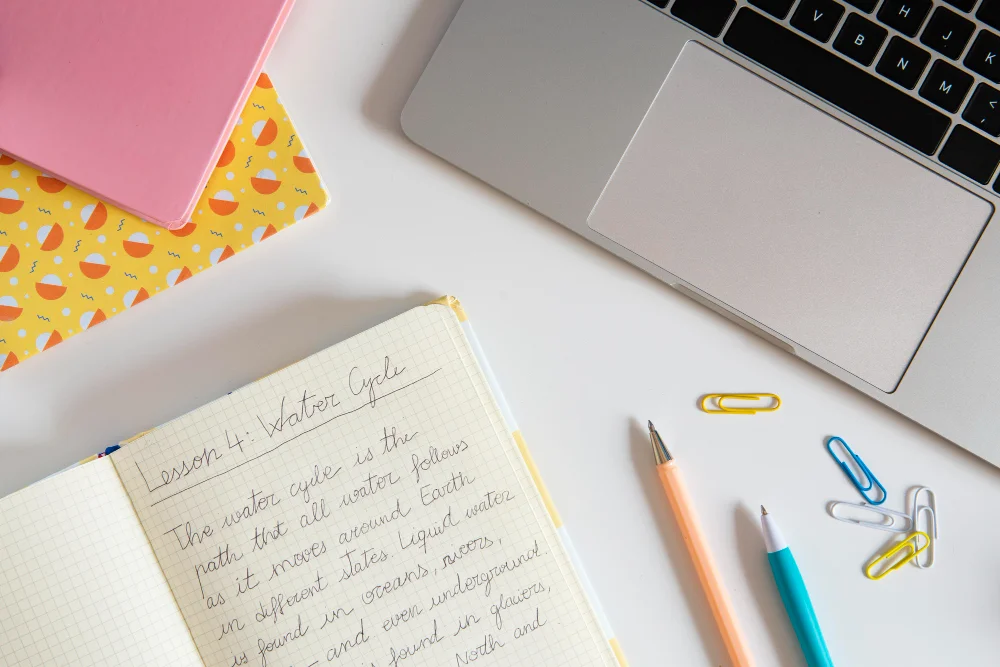 Lesson 4: Water Cycle
The water cycle is the
path that all water follows
as it moves around Earth
in different states. Liquid water
is found in oceans, rivers,
– and even underground.
found in glaciers,
North and
V
B
N
H
J
M
K
<
,